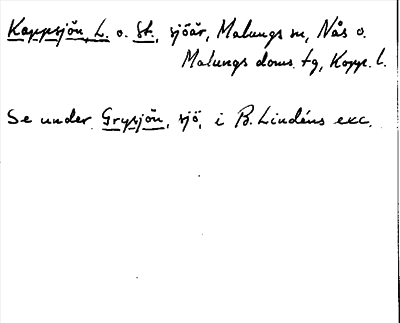 Kappsjön, L. o. St., sjöar, Malungs sn, Nås o.
Malungs doms. tg, Kopp. l.
Se under Grysjön, sjö, i B. Lindéns exc.